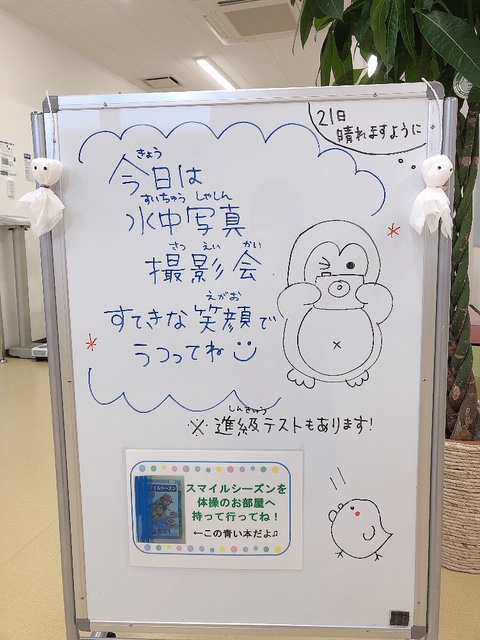 21日
晴れますように
きょう
今日は
すいちゅう しゃしん
水中写真
さつ えい かい
撮影会
えがお
すてきな笑顔で
うつってね
しんきゅう
※進級テストもあります!
スマイルシーズンを
体操のお部屋へ
持って行ってね!
←この青い本だよ♫